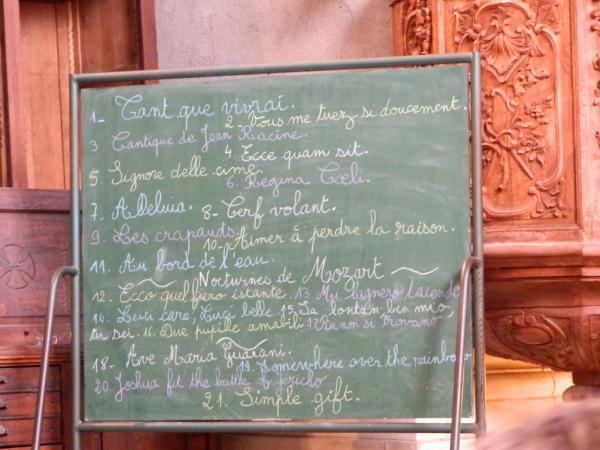 1_ Tant que vivrai.
2_ Vous me tuez si doucement.
3. Cantique de Jean Racine.
4. Ecce quam sit.
5. Signore delle cime.
6. Regina Cœli.
7. Alleluia.
8- Cerf volant.
9. Les crapauds.
10- Aimer à perdre la raison.
11. Au bord de l'eau.
Nocturnes de Mozart
12. Ecco quel fiero istante. 13. Mi lagnero tacendo
14. Luci care, Luci belle. 15. Se lontan ben mio,
tu sei. 16. Due pupille amabili 17. Piu non si trovano
18- Ave Maria Guarani.
19. Somewhere over the rainbow
20. Joshua fit the battle of Jericho
21. Simple gift.